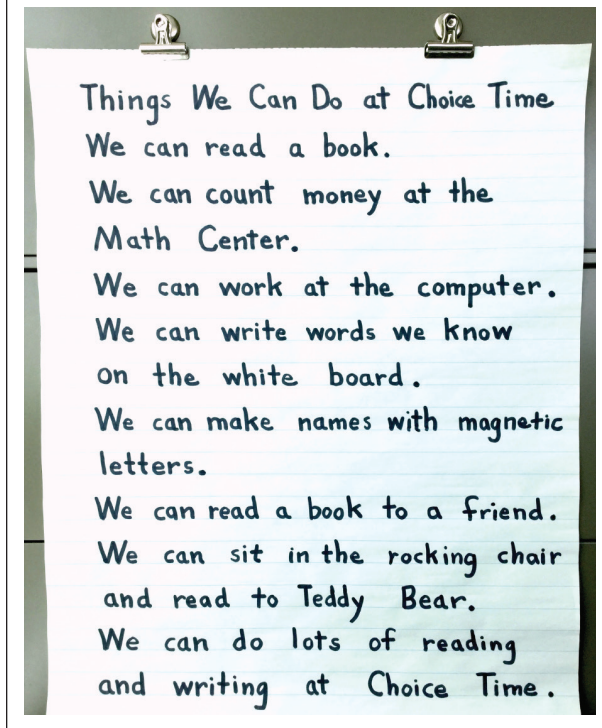 Things We Can Do at Choice Time
We can read a book.
We can count money at the
Math Center.
We can work at the computer.
We can write words we know
on the white board.
We can make names with magnetic
letters.
We can read a book to a friend.
We can sit in the rocking chair
and read to Teddy Bear.
We can do lots of reading
and writing at Choice Time.